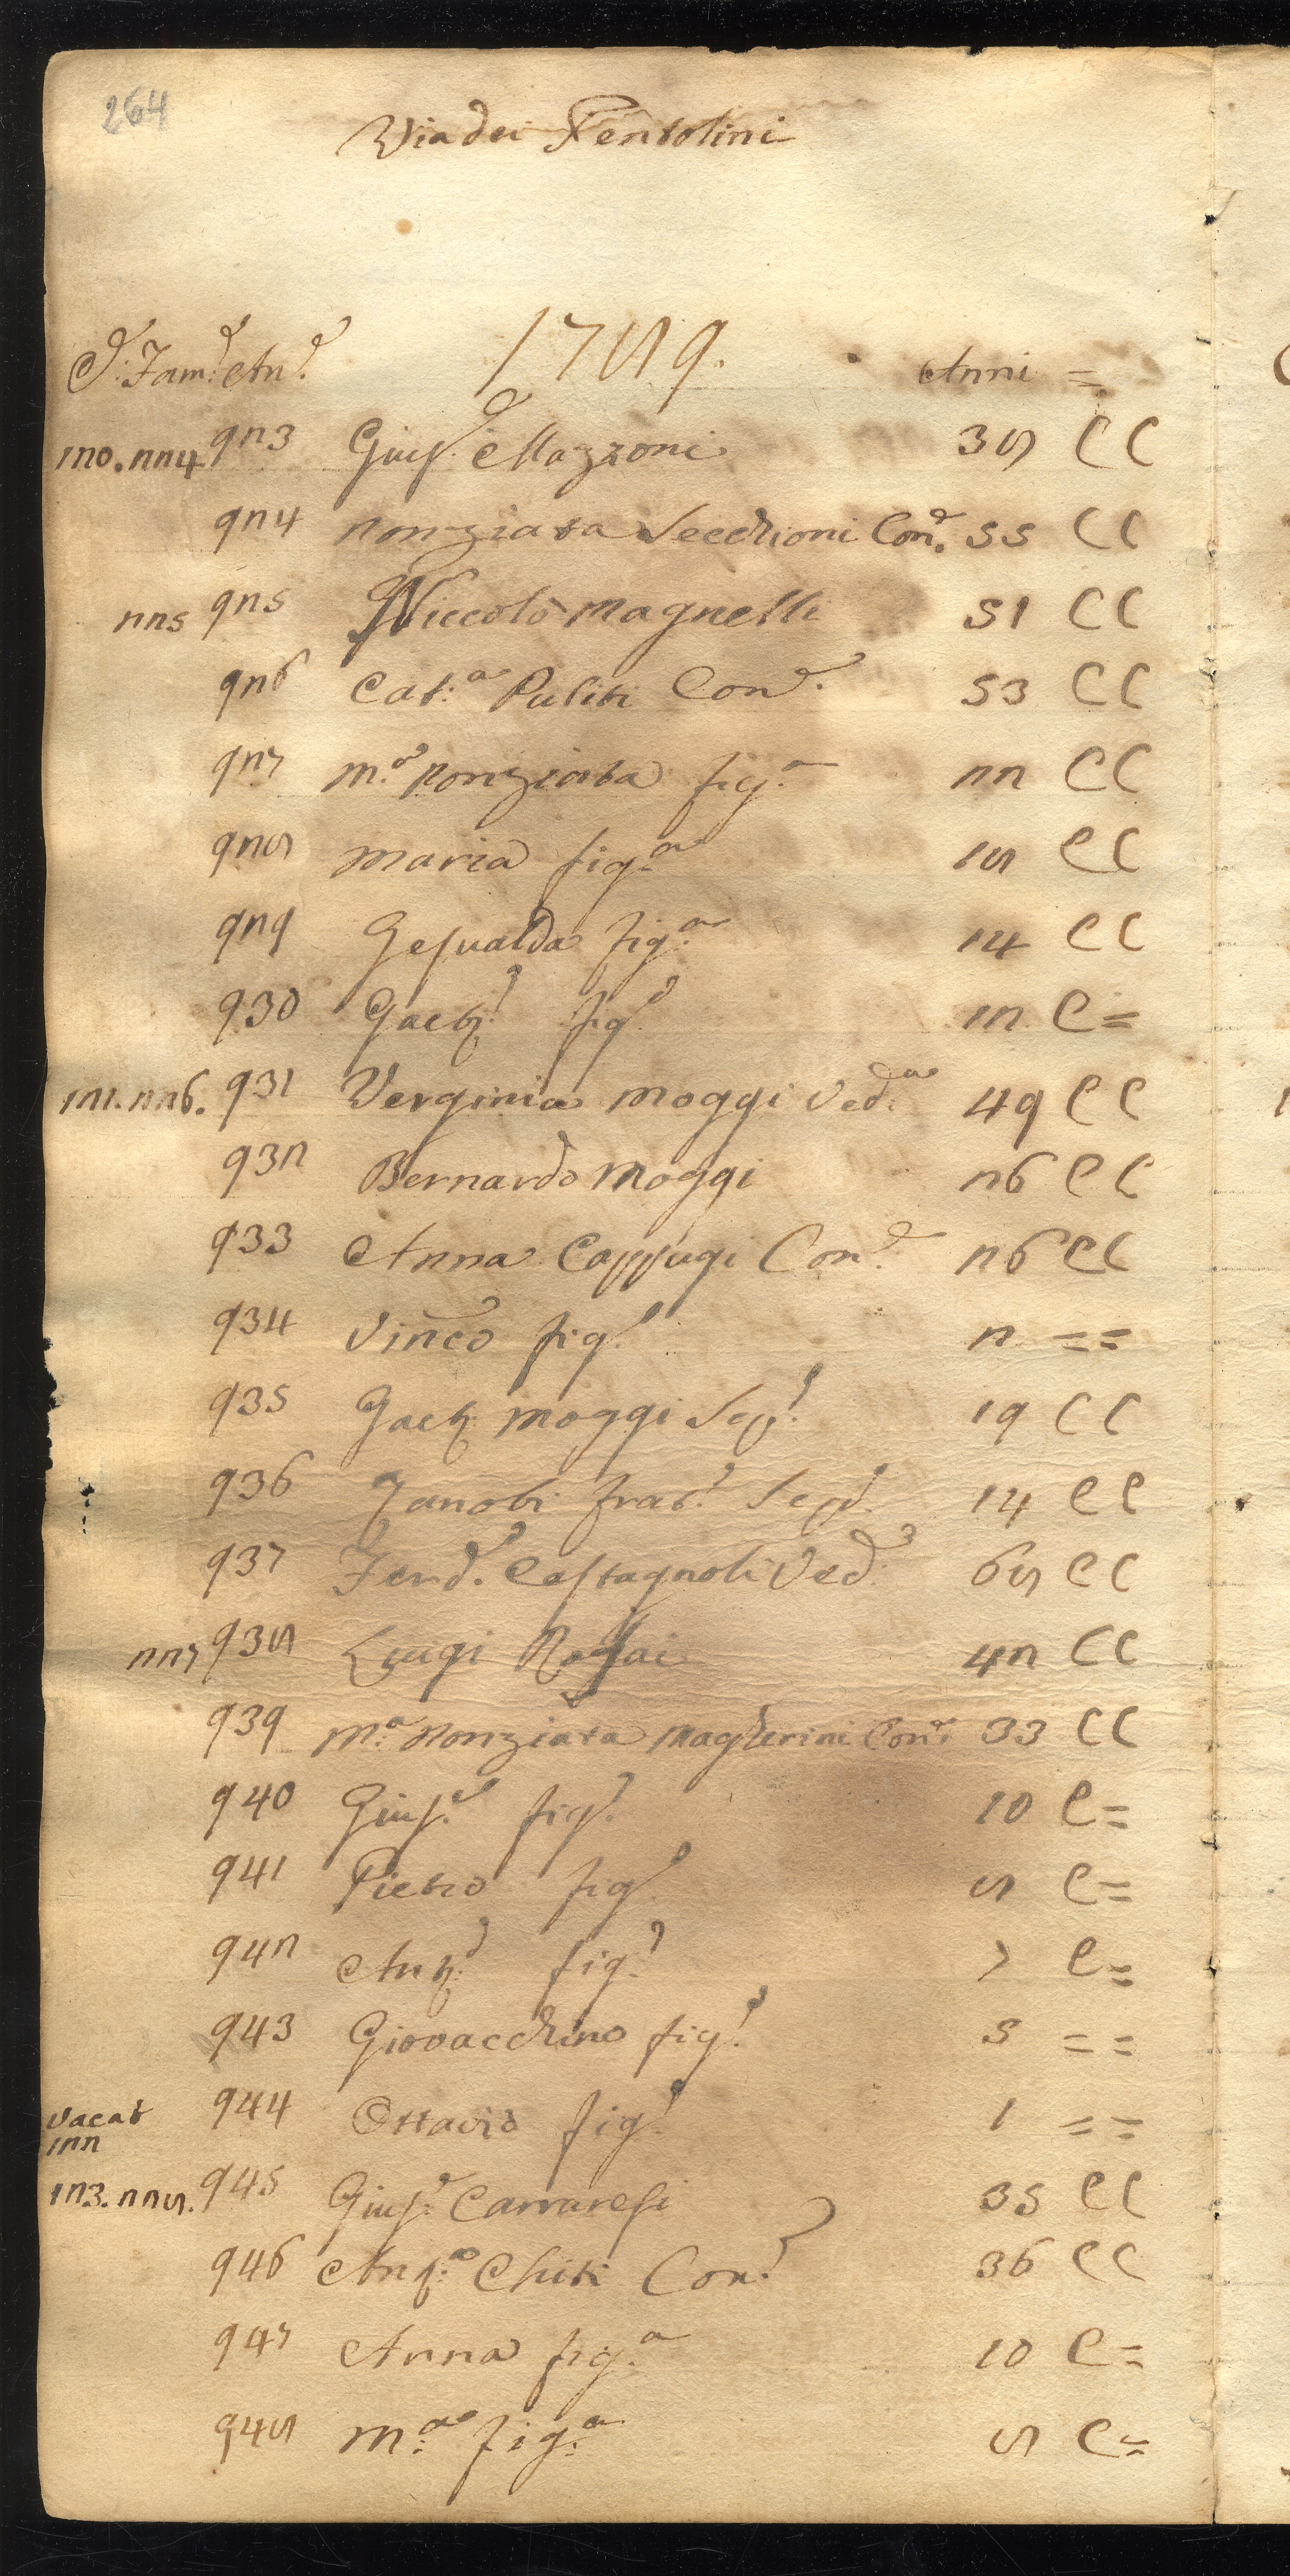 264
Via dei Pentolini
C.e Fam.e An.e 1789. Anni =
120. 224 923 Gius.e Mazzoni 38 C C
924 Nonziata Secchioni Con.e 55 C C
225 925 Niccolò Magnelli 51 C C
926 Cat.a Puliti Con.e 53 C C
927 M.a Nonziata fig.a 22 C C
928 Maria fig.a 18 C C
929 Gesualda fig.a 14 C C
930 Gaet.o fig.o 12 C =
121. 226. 931 Verginia Moggi Ved.a 49 C C
932 Bernardo Moggi 26 C C
933 Anna Cappugi Con.e 26 C C
934 Vinco fig.o 2 = =
935 Gaet. Moggi Scp.o 19 C C
936 Zanobi frat.o Scp.o 14 C C
937 Ferd.o Castagnoli Ved.o 68 C C
227 938 Luigi Rogai 42 C C
939 M.a Nonziata Magherini Con.e 33 C C
940 Gius.e fig.o 10 C =
941 Pietro fig.o 8 C =
942 Ant.o fig.o 7 C =
943 Giovacchino fig.o 5 = =
vacat 122 944 Ottavio fig.o 1 = =
123. 228. 945 Gius.e Carraresi 35 C C
946 Ang.a Chiti Con.e 36 C C
947 Anna fig.a 10 C =
948 M.a fig.a 8 C =